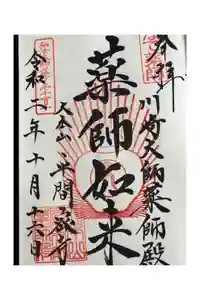 奉拝
川崎大師薬師殿
薬師如来
大本山平間寺
令和二年十月十六日